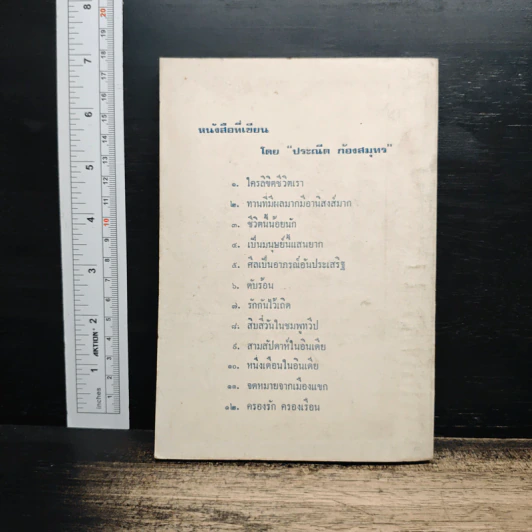 หนังสือที่เขียน
โดย "ประณีต ก้องสมุทร"
๑. ใครลิขิตชีวิตเรา
๒. ทานที่มีผลมากมีอานิสงส์มาก
๓. ชีวิตนี้น้อยนัก
๔. เป็นมนุษย์นี้แสนยาก
๕. ศีลเป็นอาภรณ์อันประเสริฐ
๖. ดับร้อน
๗. รักกันไว้เถิด
๘. สิบสี่วันในชมพูทวีป
๙. สามสัปดาห์ในอินเดีย
๑๐. หนึ่งเดือนในอินเดีย
๑๑. จดหมายจากเมืองแขก
๑๒. ครองรัก ครองเรือน
8
7
6
5
4
3
2
1
inches
20
10